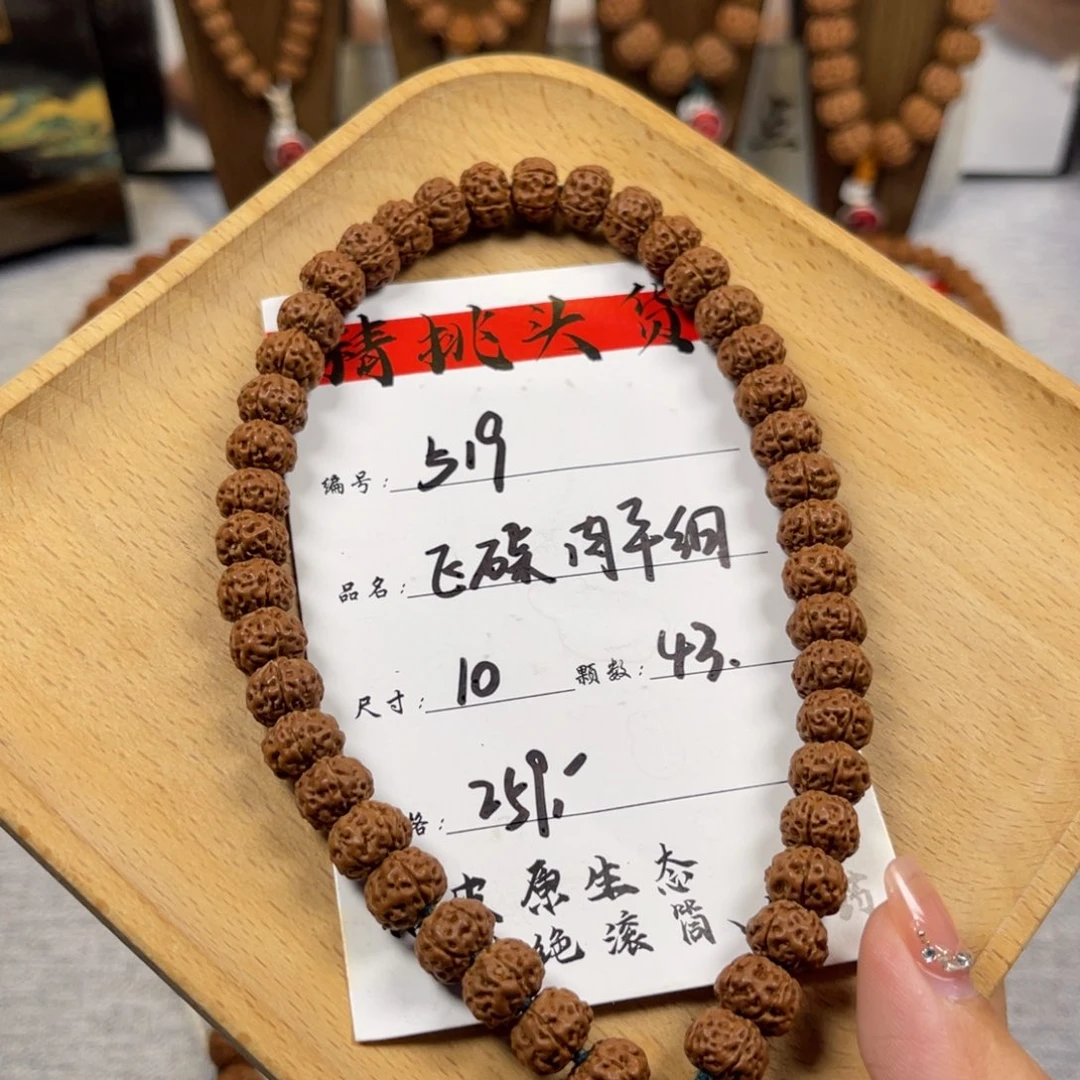 精挑头货
编号: 519
品名: 飞碟肉平纲
尺寸: 10 颗数: 43.
格: 259,
皮 原生态
绝 滚筒、